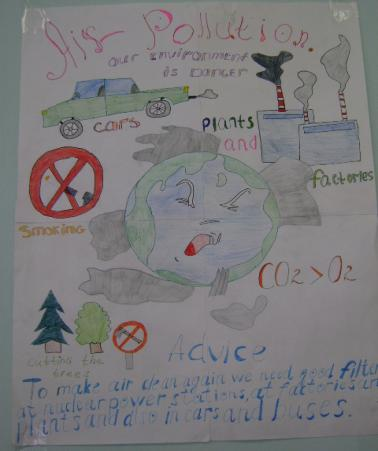 Air Pollution.
our environment
is danger
cars
plants
and
factories
smoking
CO2 > O2
cutting the
trees
Advice
To make air clean again we need good filter
at nuclear power stations, at factories an
plants and also in cars and buses.